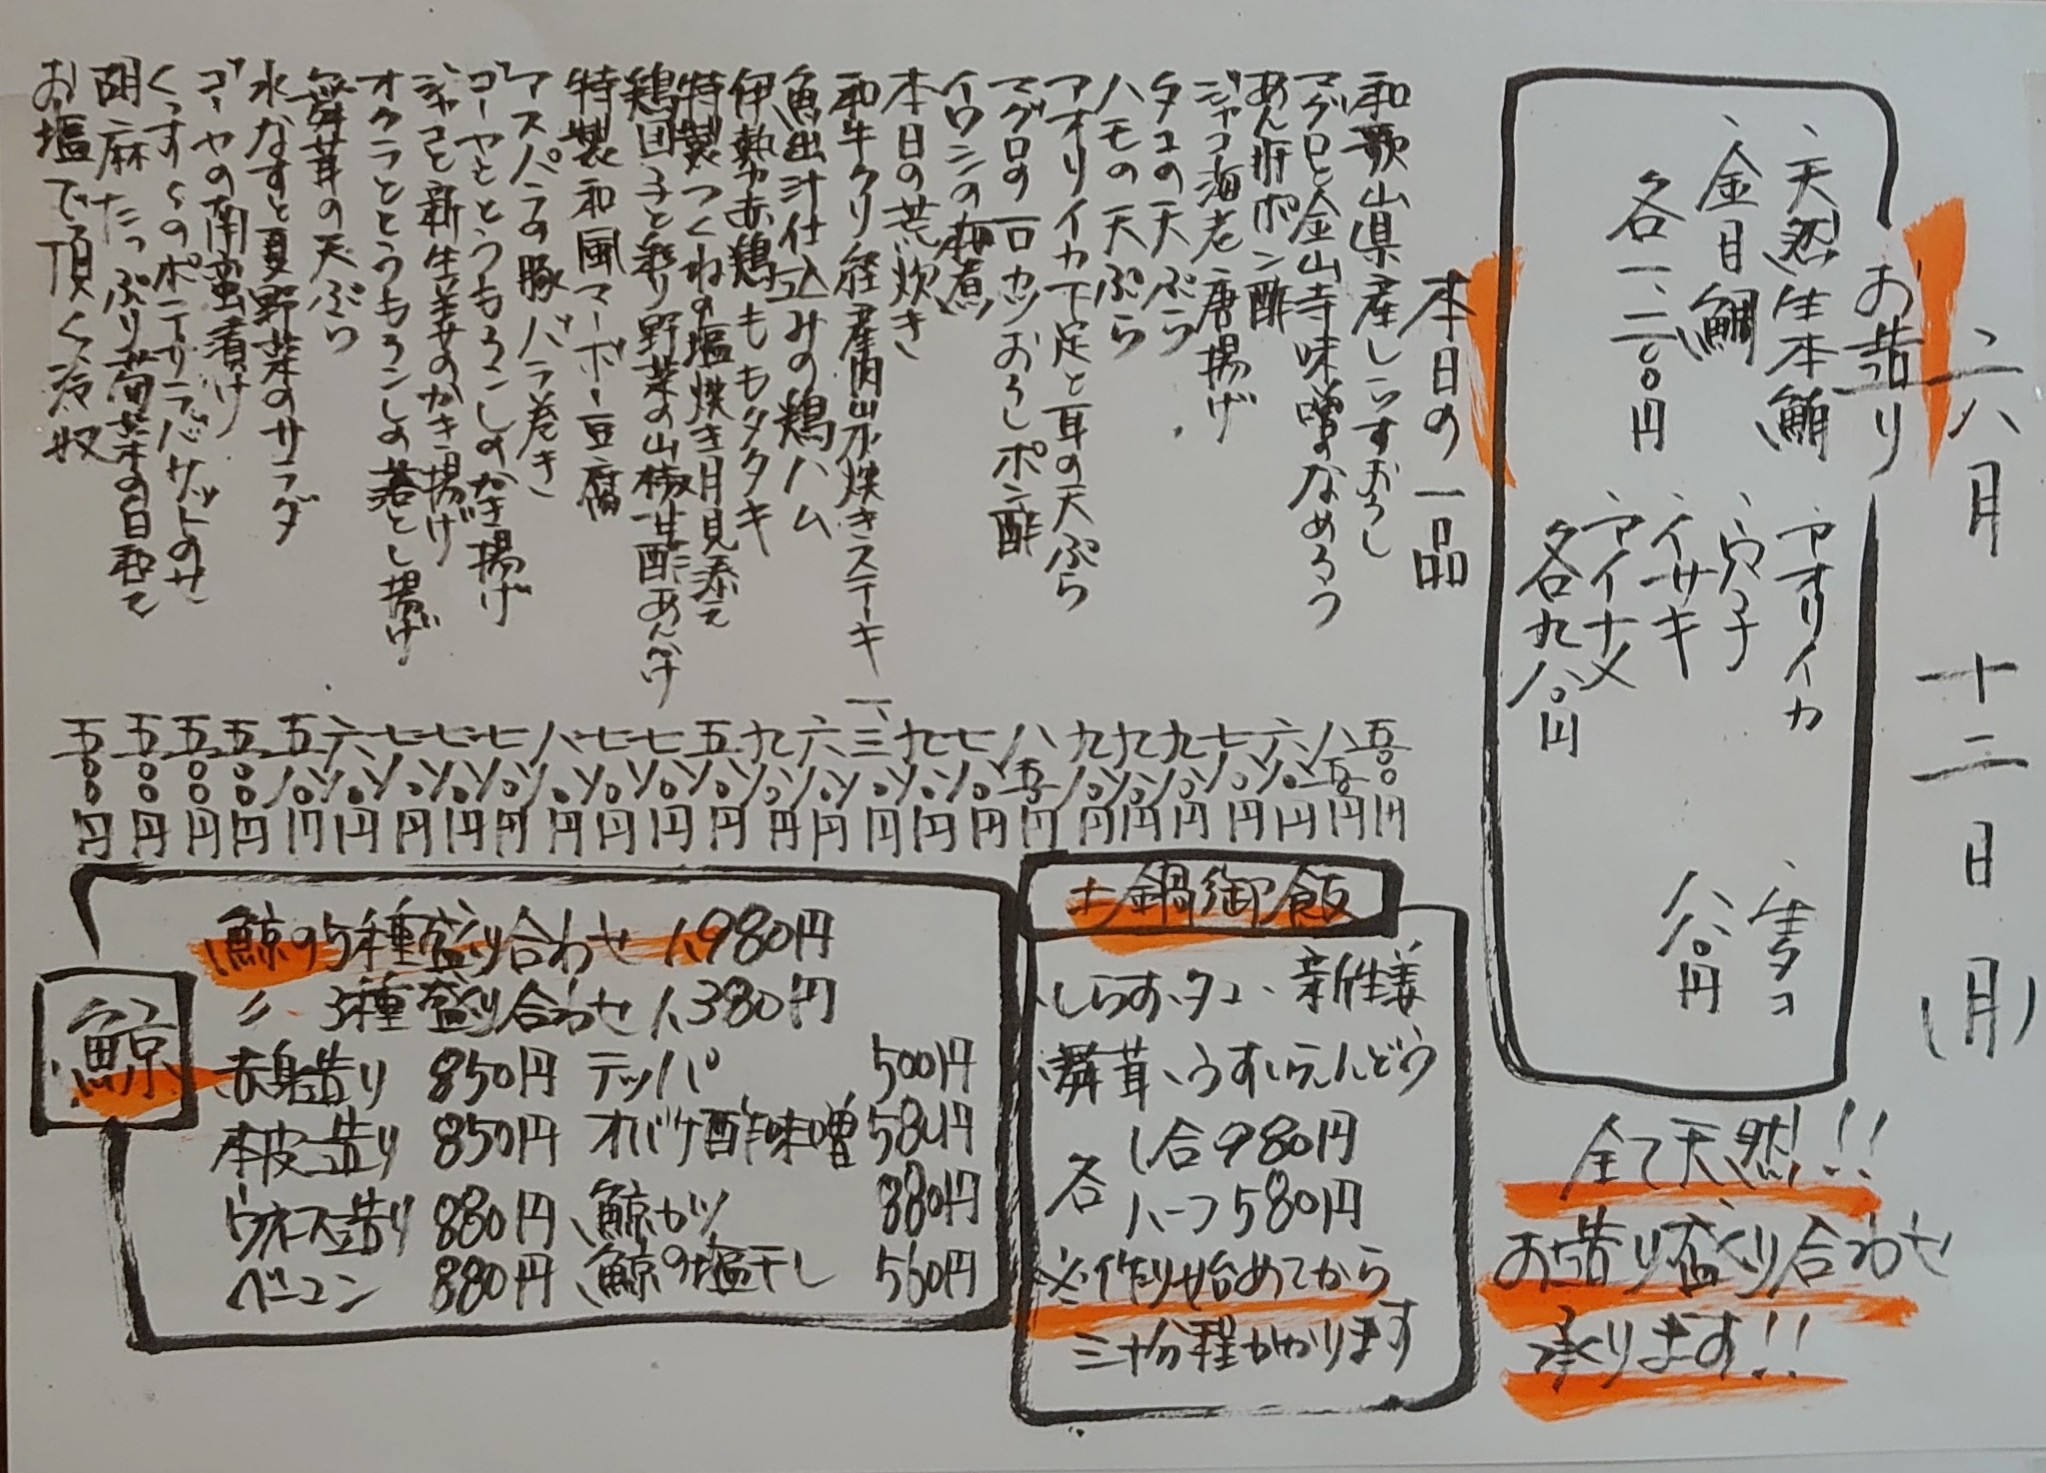 六月十二日(月)
お造り
、天然生本鮪
、金目鯛
各一、二八〇円
、アオリイカ
、穴子
、イサキ
、アイナメ
各九八〇円
、生タコ
八八〇円
全て天然!!
お造り盛り合わせ
承ります!!
本日の一品
和歌山県産しらすおろし 五〇〇円
マグロと金山寺味噌のなめろう 八五〇円
あん肝ポン酢 六八〇円
ジャコ海老唐揚げ 七八〇円
タコの天ぷら 九八〇円
ハモの天ぷら 九八〇円
アオリイカ下足と耳の天ぷら 九八〇円
マグロの一口カツおろしポン酢 八五〇円
イワシの梅煮 七八〇円
本日の荒炊き 九八〇円
和牛クリ経産肉山水焼きステーキ 一、三八〇円
魚出汁仕込みの鶏ハム 六八〇円
伊勢赤鶏ももタタキ 九八〇円
特製つくねの塩焼き月見添え 五八〇円
鶏団子と彩り野菜の山椒甘酢あんかけ 七八〇円
特製和風マーボー豆腐 七八〇円
アスパラの豚バラ巻き 八八〇円
ゴーヤととうもろこしのかき揚げ 七八〇円
ジャコと新生姜のかき揚げ 七八〇円
オクラととうもろこしの落とし揚げ 七八〇円
舞茸の天ぷら 六八〇円
水なすと夏野菜のサラダ 五八〇円
ゴーヤの南蛮漬け 五〇〇円
くっすぅのポテサラバケットのせ 五〇〇円
胡麻たっぷり菊菜の白和え 五〇〇円
お塩で頂く冷奴 五〇〇円
土鍋御飯
、しらす、タコ、新生姜
、舞茸、うすいえんどう
各 1合980円
ハーフ580円
※作り始めてから
三十分程かかります
鯨
、鯨の5種盛り合わせ 1,980円
〃 3種盛り合わせ 1,380円
赤身造り 850円 テッパ 500円
本皮造り 850円 オバケ酢味噌 580円
ウネス造り 880円 、鯨カツ 880円
ベーコン 880円 、鯨の塩干し 560円